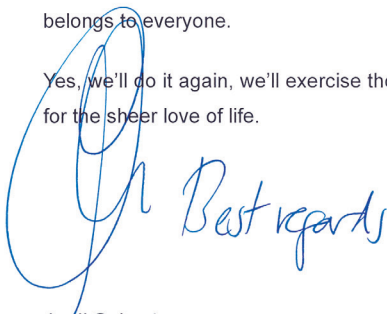 belongs to everyone.
Yes, we'll do it again, we'll exercise the
for the sheer love of life.
Best regards